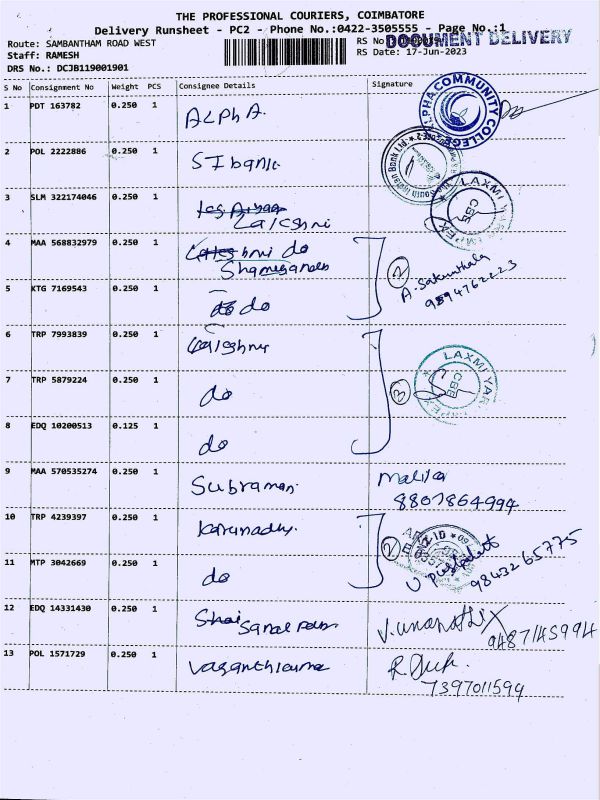 THE PROFESSIONAL COURIERS, COIMBATORE
Delivery Runsheet - PC2 - Phone No.:0422-3505555 - Page No.:1
Route: SAMBANTHAM ROAD WEST
RS No
DOCUMENT DELIVERY
Staff: RAMESH
RS Date: 17-Jun-2023
DRS No.: DCJB119001901
S No Consignment No Weight PCS Consignee Details Signature
1 PDT 163782 0.250 1 ALPHA
ALPHA COMMUNITY COLLEGE
2 POL 2222886 0.250 1 SI bank
South Indian Bank Ltd.
3 SLM 322174046 0.250 1
Lalcshmi
LAXMI
CBE
4 MAA 568832979 0.250 1 do
2
A. Sakunthala
9594762223
5 KTG 7169543 0.250 1 do
6 TRP 7993839 0.250 1
LAXMI YAR
CBE
7 TRP 5879224 0.250 1 do
3
8 EDQ 10200513 0.125 1 do
9 MAA 570535274 0.250 1 Subraman
8807864994
10 TRP 4239397 0.250 1
2
11 MTP 3042669 0.250 1 do
9843265775
12 EDQ 14331430 0.250 1
9487145994
13 POL 1571729 0.250 1
7397011594